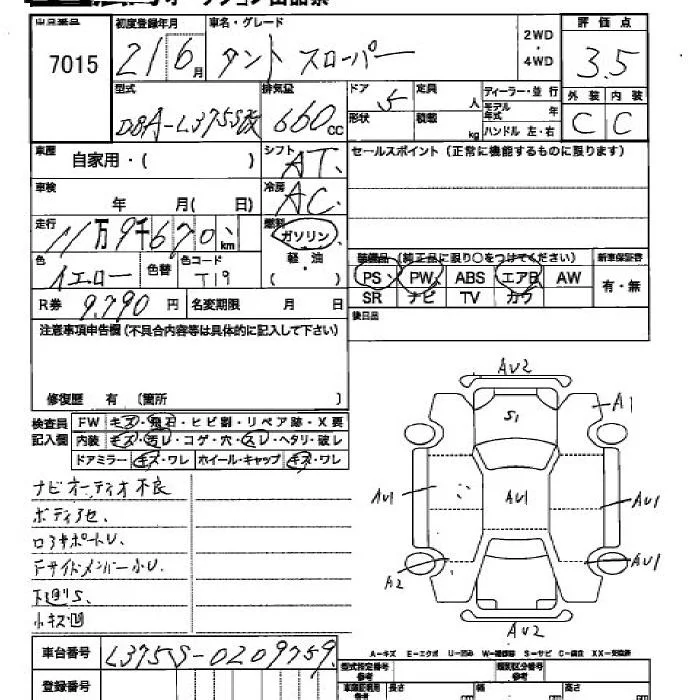 オークション出品票
出品番号 初度登録年月 車名・グレード 評価点
7015 21 6月 タント スローパー 2WD・4WD 3.5
型式 排気量 ドア 定員 人 ディーラー・並行 外装 内装
DBA-L375S改 660cc 5 形状 積載 kg モデル年式 年 ハンドル 左・右 C C
車歴 自家用・( ) シフト AT セールスポイント(正常に機能するものに限ります)
車検 年 月( 日) 冷房 AC
走行 11万9千670km 燃料 ガソリン
軽・油
( )
装備品 (純正品に限り○をつけてください) 新車保証書
色 イエロー 色替 色コード T19 PS PW ABS エアB AW 有・無
R券 9,790円 名変期限 月 日 SR ナビ TV カワ
注意事項申告欄(不具合内容等は具体的に記入して下さい) 後日品
修復歴 有 〔箇所 〕
検査員記入欄 FW キズ・飛石・ヒビ割・リペア跡・X要
内装 キズ・汚レ・コゲ・穴・スレ・ヘタリ・破レ
ドアミラー キズ・ワレ ホイール・キャップ キズ・ワレ
ナビオーディオ不良
ボディアセ
F サイドメンバー小U
下廻S
小キズ凹
AU2
S1
A1
AU1
AU1
AU1
A2
AU1
AU2
A-キズ E-エクボ U-凹み W-補修跡 S-サビ C-腐食 XX-交換済
車台番号 L375S-0209759
型式指定番号 参考 類別区分番号 参考
登録番号 長さ 幅 高さ